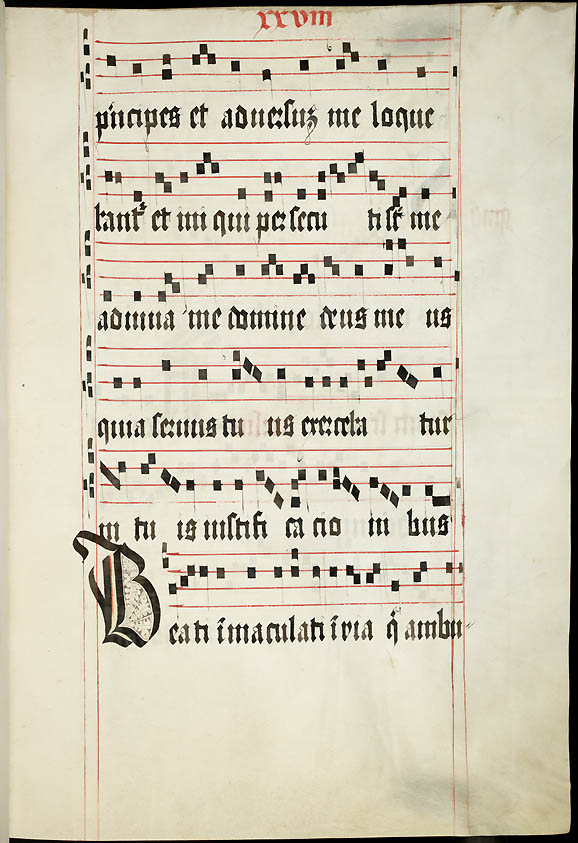 xxviii
principes et adversus me loque
bant᷑ et mi qui persecu ti st̄ me
adiuva me domine deus me us
quia servus tu us exercela tur
in tu is iustifi ca cio ni bus
Beati īmaculati ī via q̄ ambu